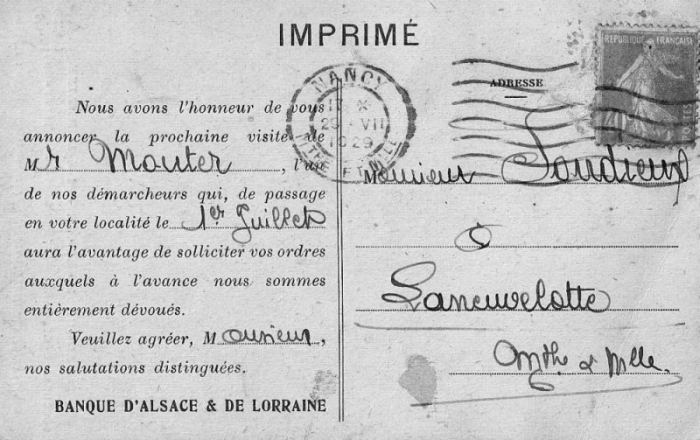 IMPRIMÉ
RÉPUBLIQUE FRANÇAISE
NANCY
1929
MTHE ET MLLE
ADRESSE
Nous avons l'honneur de vous
annoncer la prochaine visite de
Mr Mouter, l'un
de nos démarcheurs qui, de passage
en votre localité le 1er Juillet
aura l'avantage de solliciter vos ordres
auxquels à l'avance nous sommes
entièrement dévoués.
Veuillez agréer, Monsieur,
nos salutations distinguées.
BANQUE D'ALSACE & DE LORRAINE
Monsieur
à
Laneuvelotte
Mthe & Mlle.